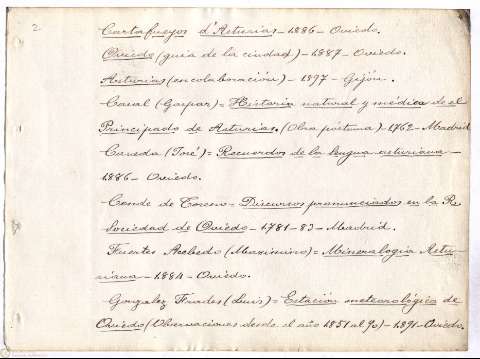 2.
Cartafueyos d'Asturias - 1886 - Oviedo.
Oviedo (guia de la ciudad) - 1887 - Oviedo.
Asturias (en colaboración) - 1897 - Gijón.
Casal (Gaspar) = Historia natural y médica de el
Principado de Asturias. (Obra póstuma) - 1762 - Madrid
Caveda (José) = Recuerdos de la lengua asturiana -
1886 - Oviedo.
Conde de Toreno - Discursos pronunciados en la Rl
Sociedad de Oviedo - 1781 - 83 - Madrid.
Fuertes Acebedo (Maximino) = Mineralogia Astu-
riana - 1884 - Oviedo.
Gonzalez Frades (Luis) = Estación meteorológica de
Oviedo (Observaciones desde el año 1851 al 90) - 1891 - Oviedo.